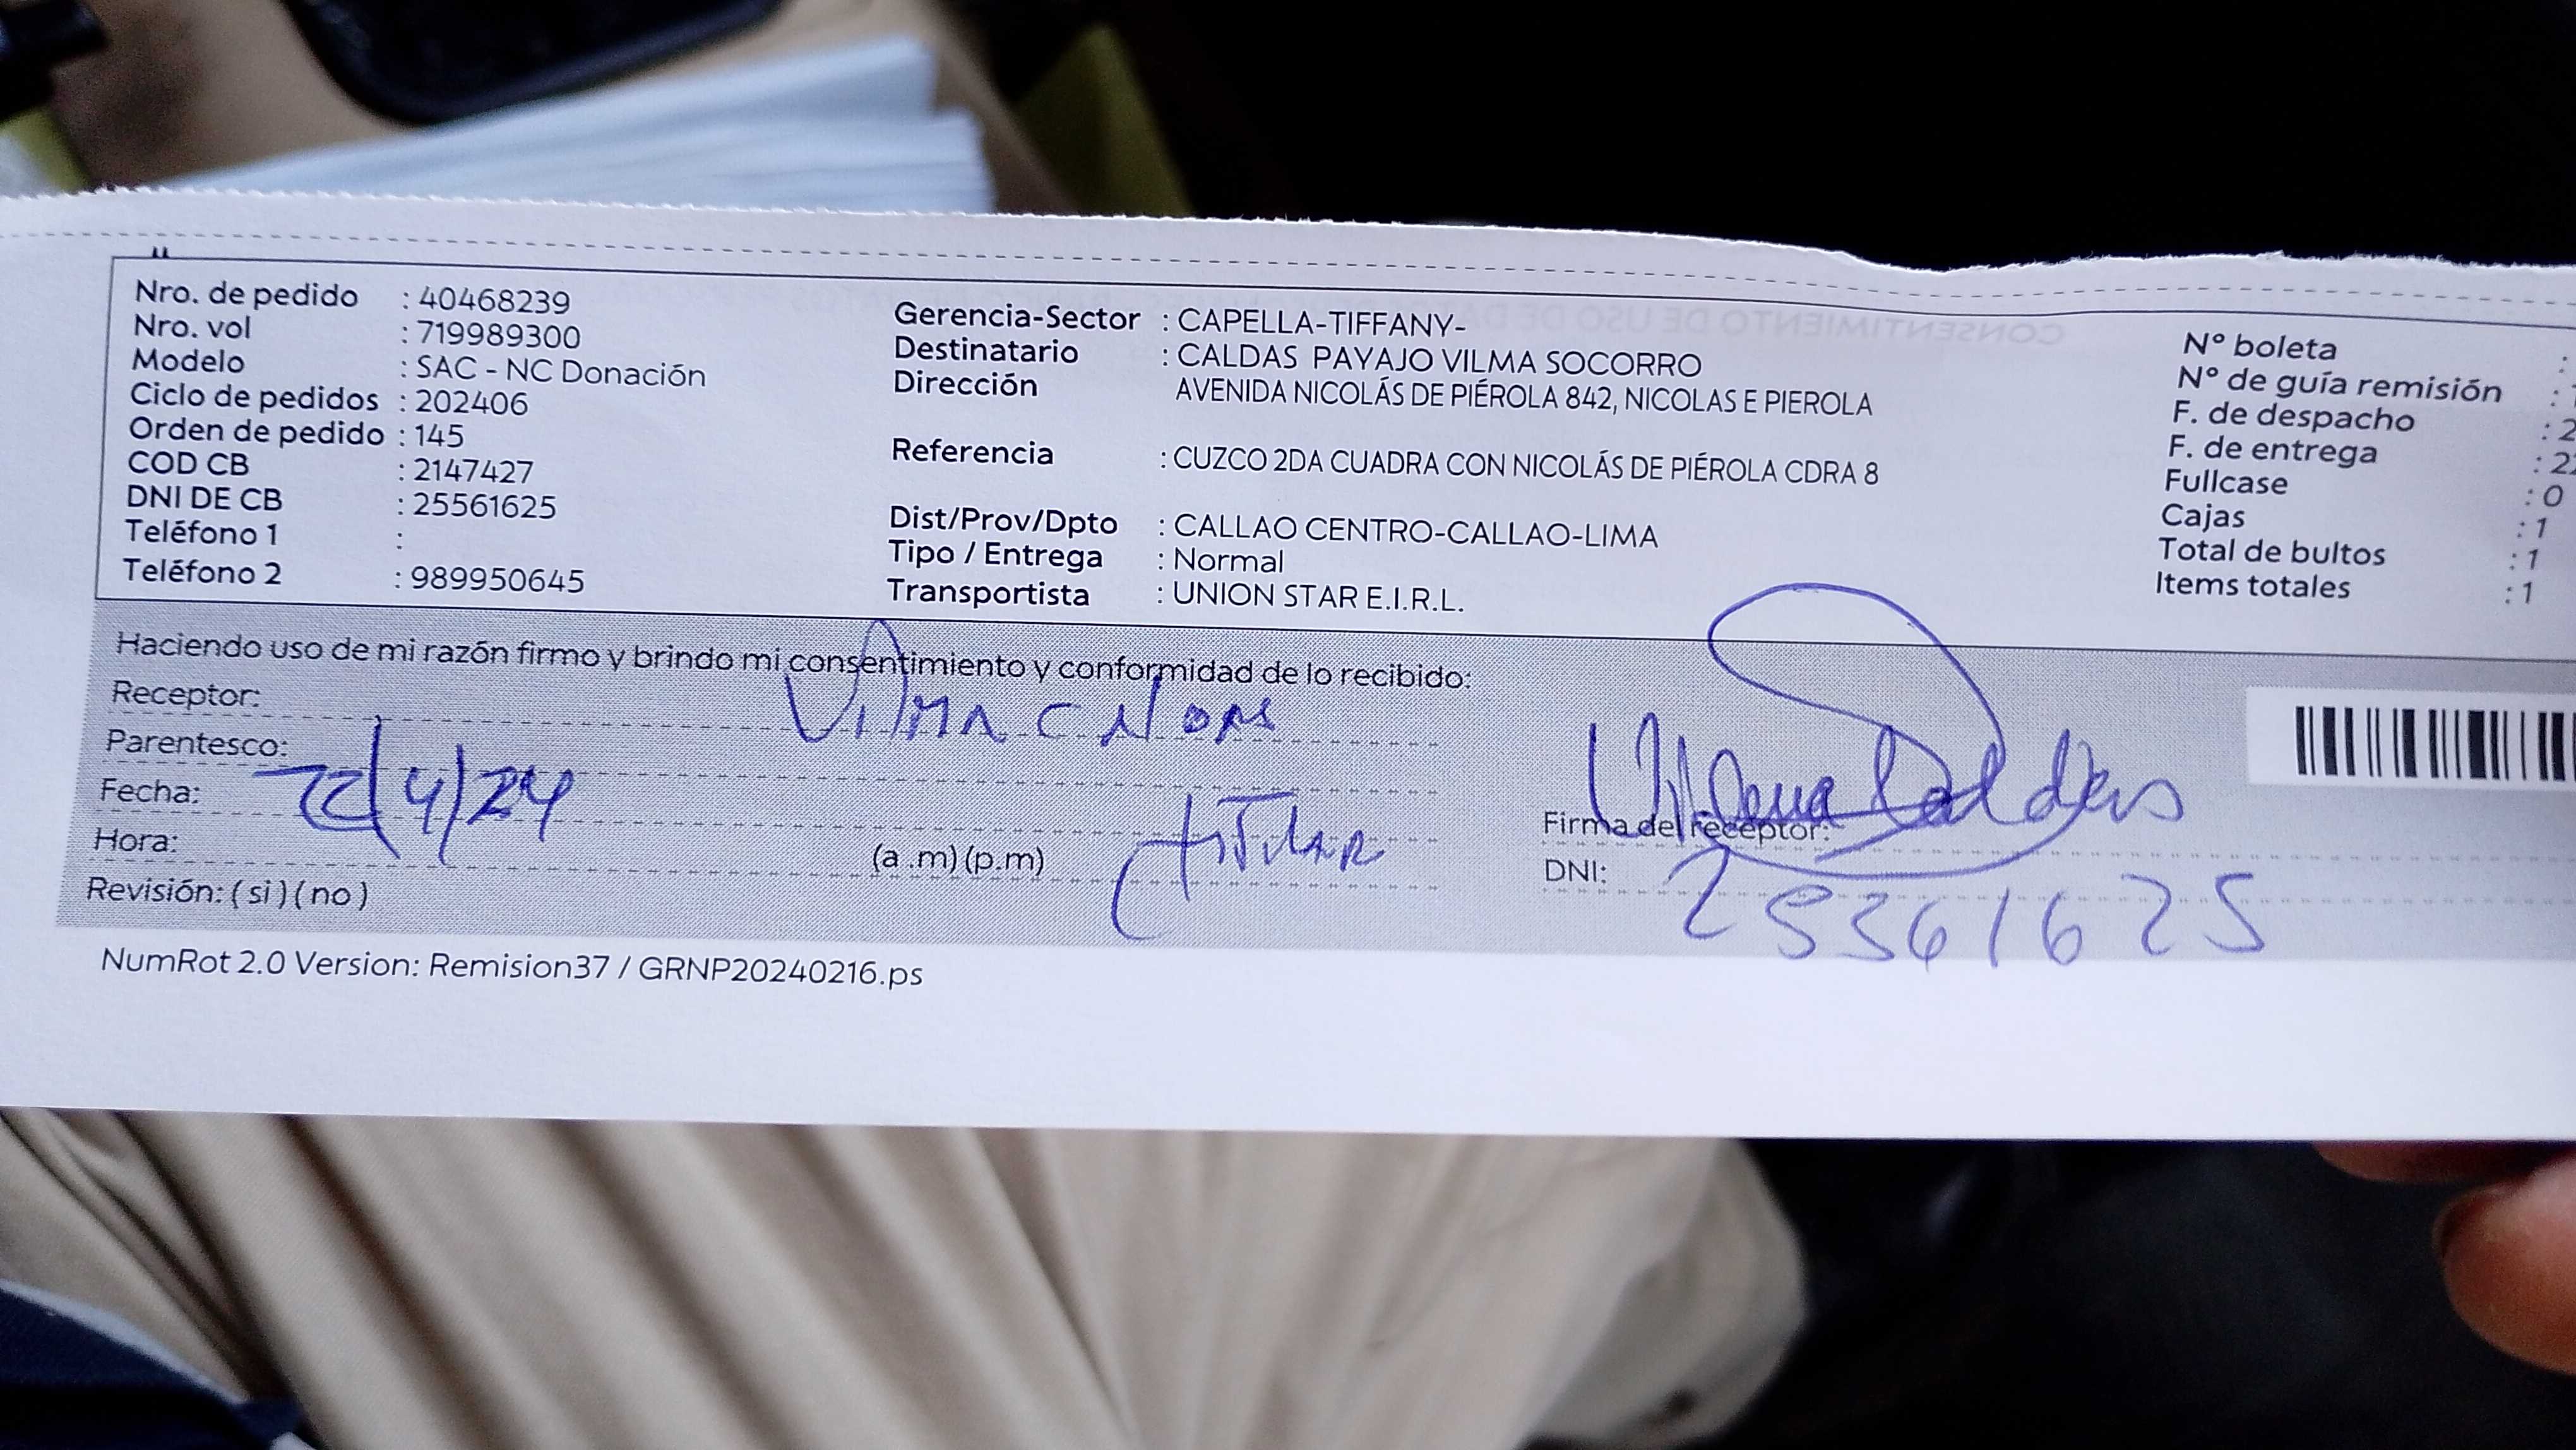 Nro. de pedido : 40468239
Nro. vol : 719989300
Modelo : SAC - NC Donación
Ciclo de pedidos : 202406
Orden de pedido : 145
COD CB : 2147427
DNI DE CB : 25561625
Teléfono 1 :
Teléfono 2 : 989950645
Gerencia-Sector : CAPELLA-TIFFANY-
Destinatario : CALDAS PAYAJO VILMA SOCORRO
Dirección AVENIDA NICOLÁS DE PIÉROLA 842, NICOLAS E PIEROLA
Referencia : CUZCO 2DA CUADRA CON NICOLÁS DE PIÉROLA CDRA 8
Dist/Prov/Dpto : CALLAO CENTRO-CALLAO-LIMA
Tipo / Entrega : Normal
Transportista : UNION STAR E.I.R.L.
N° boleta :
N° de guía remisión :
F. de despacho : 2
F. de entrega : 2
Fullcase : 0
Cajas : 1
Total de bultos : 1
Items totales : 1
Haciendo uso de mi razón firmo y brindo mi consentimiento y conformidad de lo recibido:
Receptor: Vilma Caldas
Parentesco:
Fecha: 22/4/24
Hora: (a .m) (p.m) titular
Revisión: ( si ) ( no )
Vilma Caldas
Firma del receptor:
DNI: 25561625
NumRot 2.0 Version: Remision37 / GRNP20240216.ps